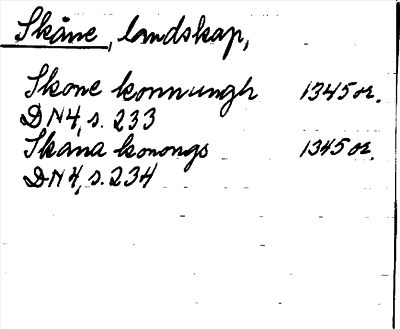 Skåne, landskap,
Skone konnungh 1345 or.
DN 4, s. 233
Skana konongs 1345 or.
DN 4, s. 234